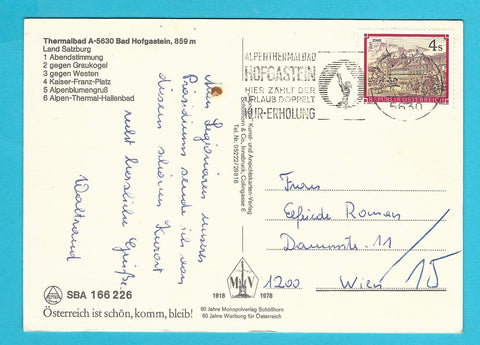 Thermalbad A-5630 Bad Hofgastein, 859 m
Land Salzburg
1 Abendstimmung
2 gegen Graukogel
3 gegen Westen
4 Kaiser-Franz-Platz
5 Alpenblumengruß
6 Alpen-Thermal-Hallenbad
Allen Legionären unseres
Präsidiums sende ich von
diesem schönen Kurort
recht herzliche Grüße
Waltraud
SBA 166 226
Österreich ist schön, komm, bleib!
Kunst- und Ansichtskarten-Verlag
Schöllhorn & Co., Innsbruck,
Tel. Nr. 05222/28816
M V
1918 1978
60 Jahre Monopolverlag Schöllhorn
60 Jahre Werbung für Österreich
ALPENTHERMALBAD
HOFGASTEIN
HIER ZÄHLT DER
URLAUB DOPPELT
KUR-ERHOLUNG
5630
4 S
REPUBLIK ÖSTERREICH
Frau
Elfriede Roman
11
1200 Wien
15